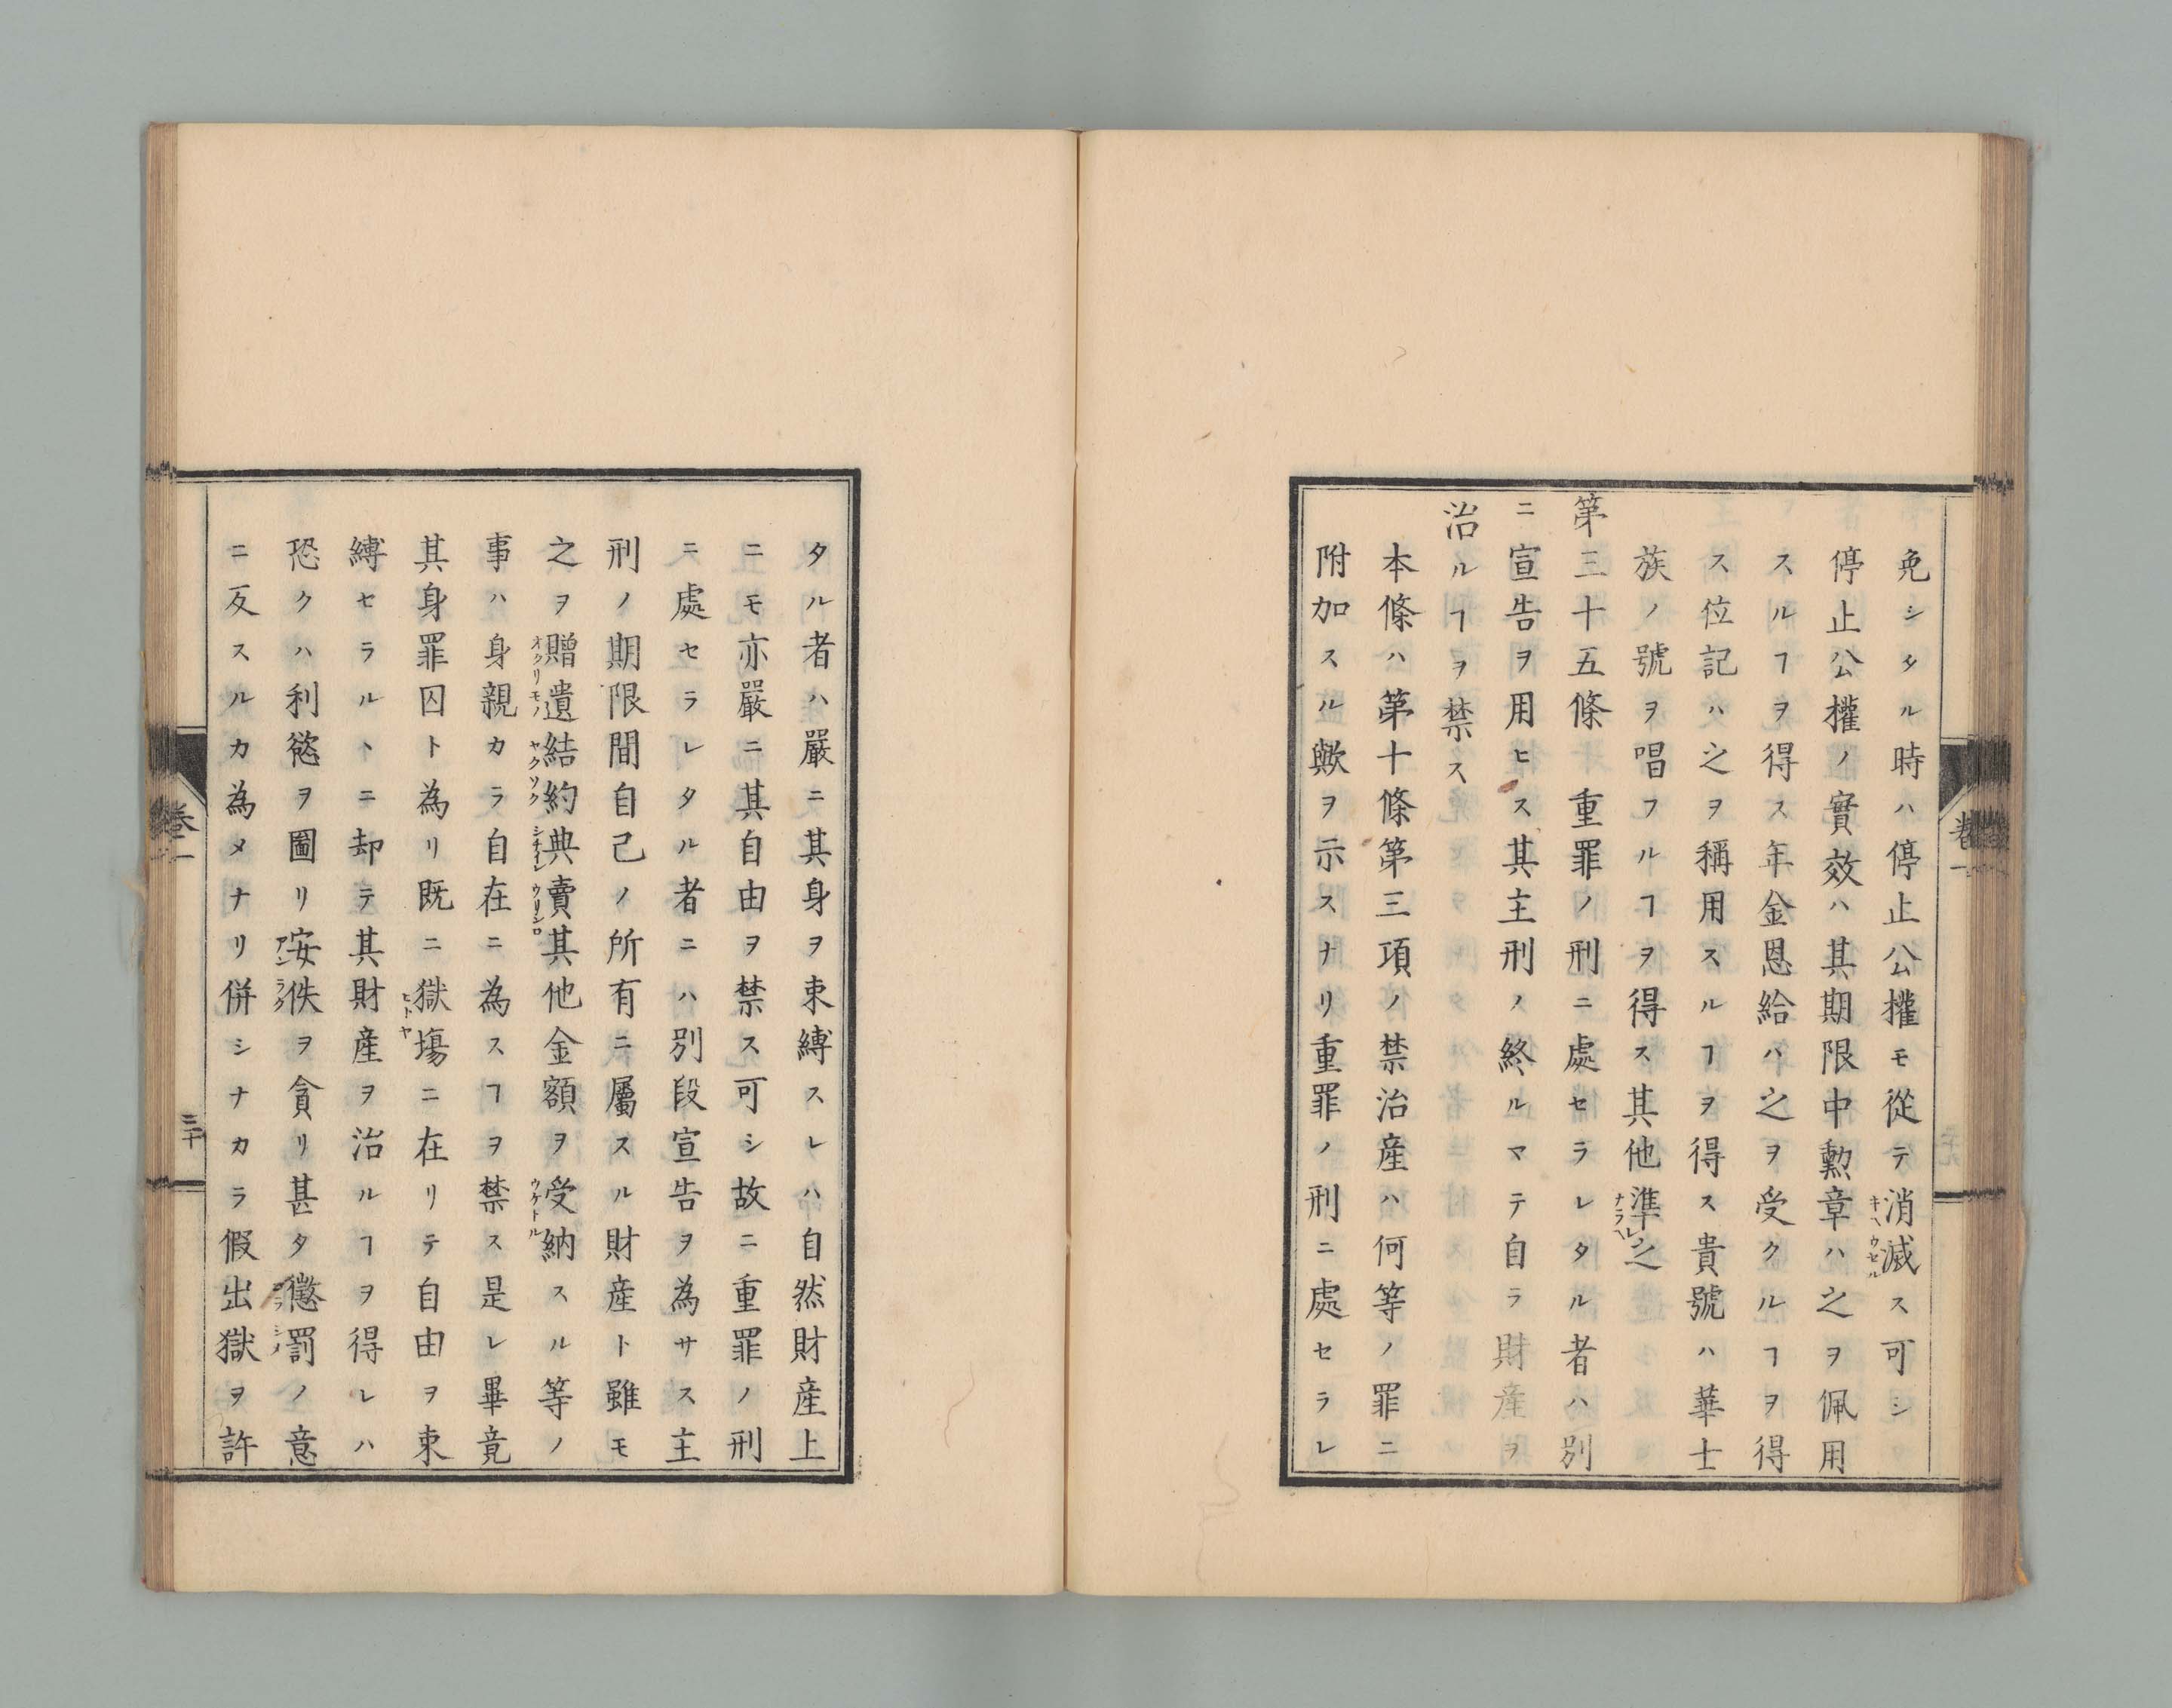 免シタル時ハ停止公權モ從テ消滅ス可シ
停止公權ノ實效ハ其期限中勲章ハ之ヲ佩用
スルヿヲ得ス年金恩給ハ之ヲ受クルヿヲ得
ス位記ハ之ヲ稱用スルヿヲ得ス貴號ハ華士
族ノ號ヲ唱フルヿヲ得ス其他準之
第三十五條 重罪ノ刑ニ處セラレタル者ハ別
ニ宣告ヲ用ヒス其主刑ノ終ルマテ自ラ財産ヲ
治ルヿヲ禁ス
本條ハ第十條第三項ノ禁治産ハ何等ノ罪ニ
附加スル歟ヲ示スナリ重罪ノ刑ニ處セラレ
タル者ハ嚴ニ其身ヲ束縛スレハ自然財産上
ニモ亦嚴ニ其自由ヲ禁ス可シ故ニ重罪ノ刑
ニ處セラレタル者ニハ別段宣告ヲ為サス主
刑ノ期限間自己ノ所有ニ屬スル財産ト雖モ
之ヲ贈遺結約典賣其他金額ヲ受納スル等ノ
事ハ身親カラ自在ニ為スヿヲ禁ス是レ畢竟
其身罪囚ト為リ既ニ獄塲ニ在リテ自由ヲ束
縛セラルヽニ却テ其財産ヲ治ルヿヲ得レハ
恐クハ利慾ヲ圖リ安佚ヲ貪リ甚タ懲罰ノ意
ニ反スルカ為メナリ併シナカラ假出獄ヲ許
卷一
三十